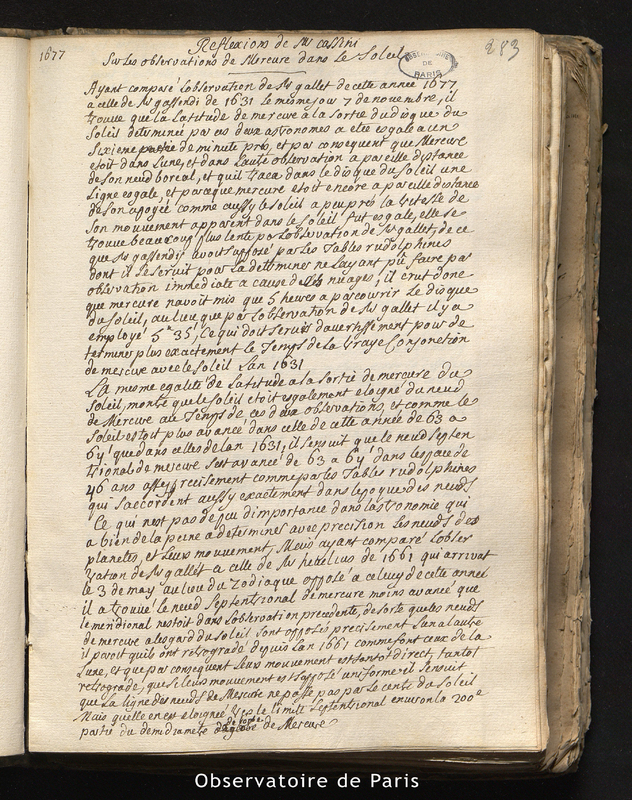 1677
283
Reflexions de Mr cassini
Sur Les observations de Mercure dans Le Soleil
OBSERVATOIRE DE PARIS
Ayant comparé Lobservation de Mr gallet de cette année 1677
a celle de Mr gassendi de 1631 Le mesme jour 7 de novembre, il
trouve que la Latitude de mercure a la Sortie du disque du
Soleil determinée par ces deux astronomes a esté esgale a un
Sixieme partie de minute prés, et par consequent que Mercure
etoit dans Lune, et dans Lautre observation a pareille distance
de Son neud boreal, et quil traca dans le disque du Soleil une
Ligne esgale, et parceque mercure etoit encore a pareille distance
de Son apogée comme aussy le Soleil a peu prés la vitesse de
Son mouvement apparent dans le Soleil fut esgale, elle Se
trouve beaucoup plus lente par Lobservation de Mr gallet, de ce
que Mr gassendi avoit supposé par Les Tables rudolphines
dont il Se Servit pour La determiner ne Layant pû faire par
observation immediate a cause des nuages, il crut donc
que mercure navoit mis que 5 heures a parcourrir Le disque
du Soleil, au lieu que par Lobservation de Mr gallet il y a
employé 5h 35', Ce qui doit Servir davertissement pour de
terminer plus exactement le Temps de La vraye Conjonction
de mercure avec le Soleil Lan 1631
La mesme egalité de Latitude a la Sortie de mercure du
Soleil, montre que le Soleil etoit esgalement eloigné du neud
de Mercure au Temps de ces deux observations, et comme le
Soleil estoit plus avancé dans celle de cette année de 63 a
64' que dans celles de Lan 1631, il sensuit que le neud Septen
trional de mercure Sest avancé de 63 a 64' dans Lespace de
46 ans assez precisement comme par Les Tables rudolphines
qui Saccordent aussy exactement dans lepoque des neuds
Ce qui nest pas de peu dimportance dans lastronomie qui
a bien de la peine a determiner avec precision Les neuds des
planetes, et Leurs mouvement, Mais ayant comparé Lobser
vation de Mr gallet a celle de Mr hevelius de 1661 qui arrivat
le 3 de may au lieu du Zodiaque opposé a celuy de cette année
il a trouvé le neud Septentrional de mercure moins avancé que
le meridional nestoit dans Lobservation precedente, de Sorte que les neuds
de mercure a lesgard du Soleil Sont opposés precisement Lun a lautre
il paroit quils ont retrogradé depuis Lan 1661 comme font ceux de la
Lune, et que par consequent Leurs mouvement est tantot direct, tantot
retrograde, que si Leur mouvement est supposé uniforme il Sensuit
que La Ligne des neuds de Mercure ne passe pas par Le centre du Soleil
Mais quelle en est eloignée vers la limite Septentrional environ la 200e
partie du demidiametre de lorbe de Mercure
Observatoire de Paris